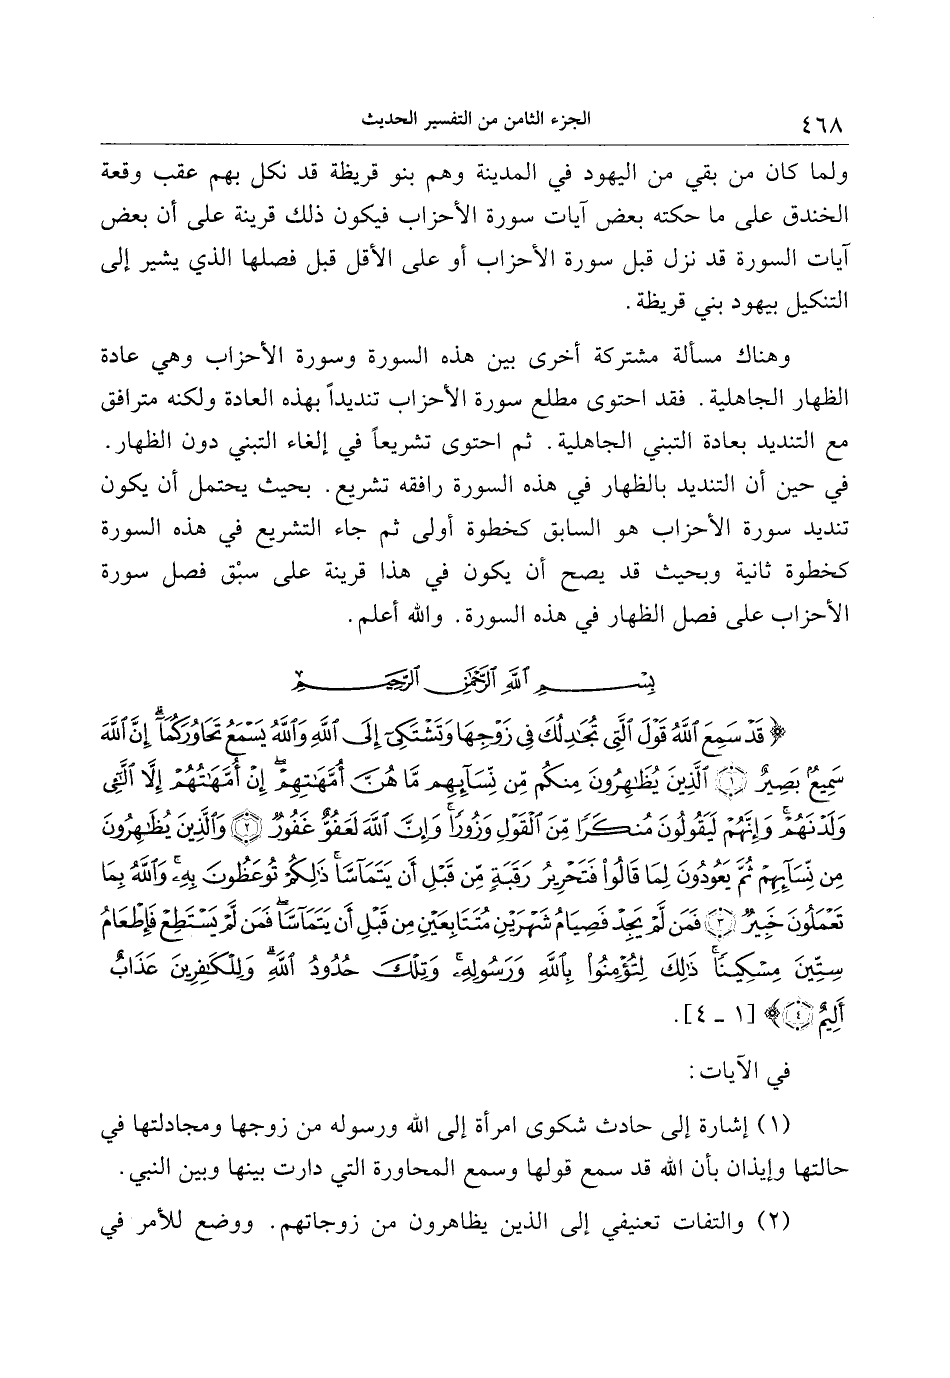 ٤٦٨ الجزء الثامن من التفسير الحديث
ولما كان من بقي من اليهود في المدينة وهم بنو قريظة قد نكل بهم عقب وقعة
الخندق على ما حكته بعض آيات سورة الأحزاب فيكون ذلك قرينة على أن بعض
آيات السورة قد نزل قبل سورة الأحزاب أو على الأقل قبل فصلها الذي يشير إلى
التنكيل بيهود بني قريظة.
وهناك مسألة مشتركة أخرى بين هذه السورة وسورة الأحزاب وهي عادة
الظهار الجاهلية. فقد احتوى مطلع سورة الأحزاب تنديداً بهذه العادة ولكنه مترافق
مع التنديد بعادة التبني الجاهلية. ثم احتوى تشريعاً في إلغاء التبني دون الظهار.
في حين أن التنديد بالظهار في هذه السورة رافقه تشريع. بحيث يحتمل أن يكون
تنديد سورة الأحزاب هو السابق كخطوة أولى ثم جاء التشريع في هذه السورة
كخطوة ثانية وبحيث قد يصح أن يكون في هذا قرينة على سبْق فصل سورة
الأحزاب على فصل الظهار في هذه السورة. والله أعلم.
بِسْمِ ٱللَّهِ ٱلرَّحْمَٰنِ ٱلرَّحِيمِ
﴿ قَدْ سَمِعَ ٱللَّهُ قَوْلَ ٱلَّتِى تُجَٰدِلُكَ فِى زَوْجِهَا وَتَشْتَكِىٓ إِلَى ٱللَّهِ وَٱللَّهُ يَسْمَعُ تَحَاوُرَكُمَآ ۚ إِنَّ ٱللَّهَ
سَمِيعٌۢ بَصِيرٌ ١ ٱلَّذِينَ يُظَٰهِرُونَ مِنكُم مِّن نِّسَآئِهِم مَّا هُنَّ أُمَّهَٰتِهِمْ ۖ إِنْ أُمَّهَٰتُهُمْ إِلَّا ٱلَّٰٓـِٔى
وَلَدْنَهُمْ ۚ وَإِنَّهُمْ لَيَقُولُونَ مُنكَرًا مِّنَ ٱلْقَوْلِ وَزُورًا ۚ وَإِنَّ ٱللَّهَ لَعَفُوٌّ غَفُورٌ ٢ وَٱلَّذِينَ يُظَٰهِرُونَ
مِن نِّسَآئِهِمْ ثُمَّ يَعُودُونَ لِمَا قَالُوا۟ فَتَحْرِيرُ رَقَبَةٍ مِّن قَبْلِ أَن يَتَمَآسَّا ۚ ذَٰلِكُمْ تُوعَظُونَ بِهِۦ ۚ وَٱللَّهُ بِمَا
تَعْمَلُونَ خَبِيرٌ ٣ فَمَن لَّمْ يَجِدْ فَصِيَامُ شَهْرَيْنِ مُتَتَابِعَيْنِ مِن قَبْلِ أَن يَتَمَآسَّا ۖ فَمَن لَّمْ يَسْتَطِعْ فَإِطْعَامُ
سِتِّينَ مِسْكِينًا ۚ ذَٰلِكَ لِتُؤْمِنُوا۟ بِٱللَّهِ وَرَسُولِهِۦ ۚ وَتِلْكَ حُدُودُ ٱللَّهِ ۗ وَلِلْكَٰفِرِينَ عَذَابٌ
أَلِيمٌ ٤ ﴾ [١ - ٤].
في الآيات:
(١) إشارة إلى حادث شكوى امرأة إلى الله ورسوله من زوجها ومجادلتها في
حالتها وإيذان بأن الله قد سمع قولها وسمع المحاورة التي دارت بينها وبين النبي.
(٢) والتفات تعنيفي إلى الذين يظاهرون من زوجاتهم. ووضع للأمر في